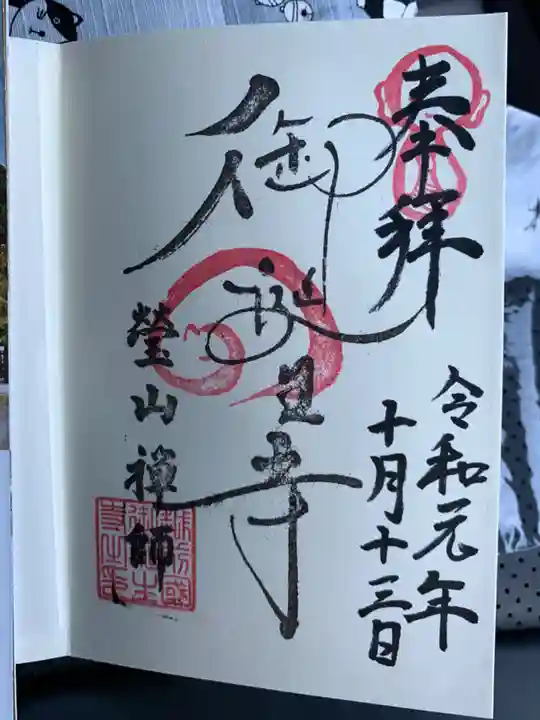 奉拝
令和元年
十月十三日
御誕生寺
瑩山禅師